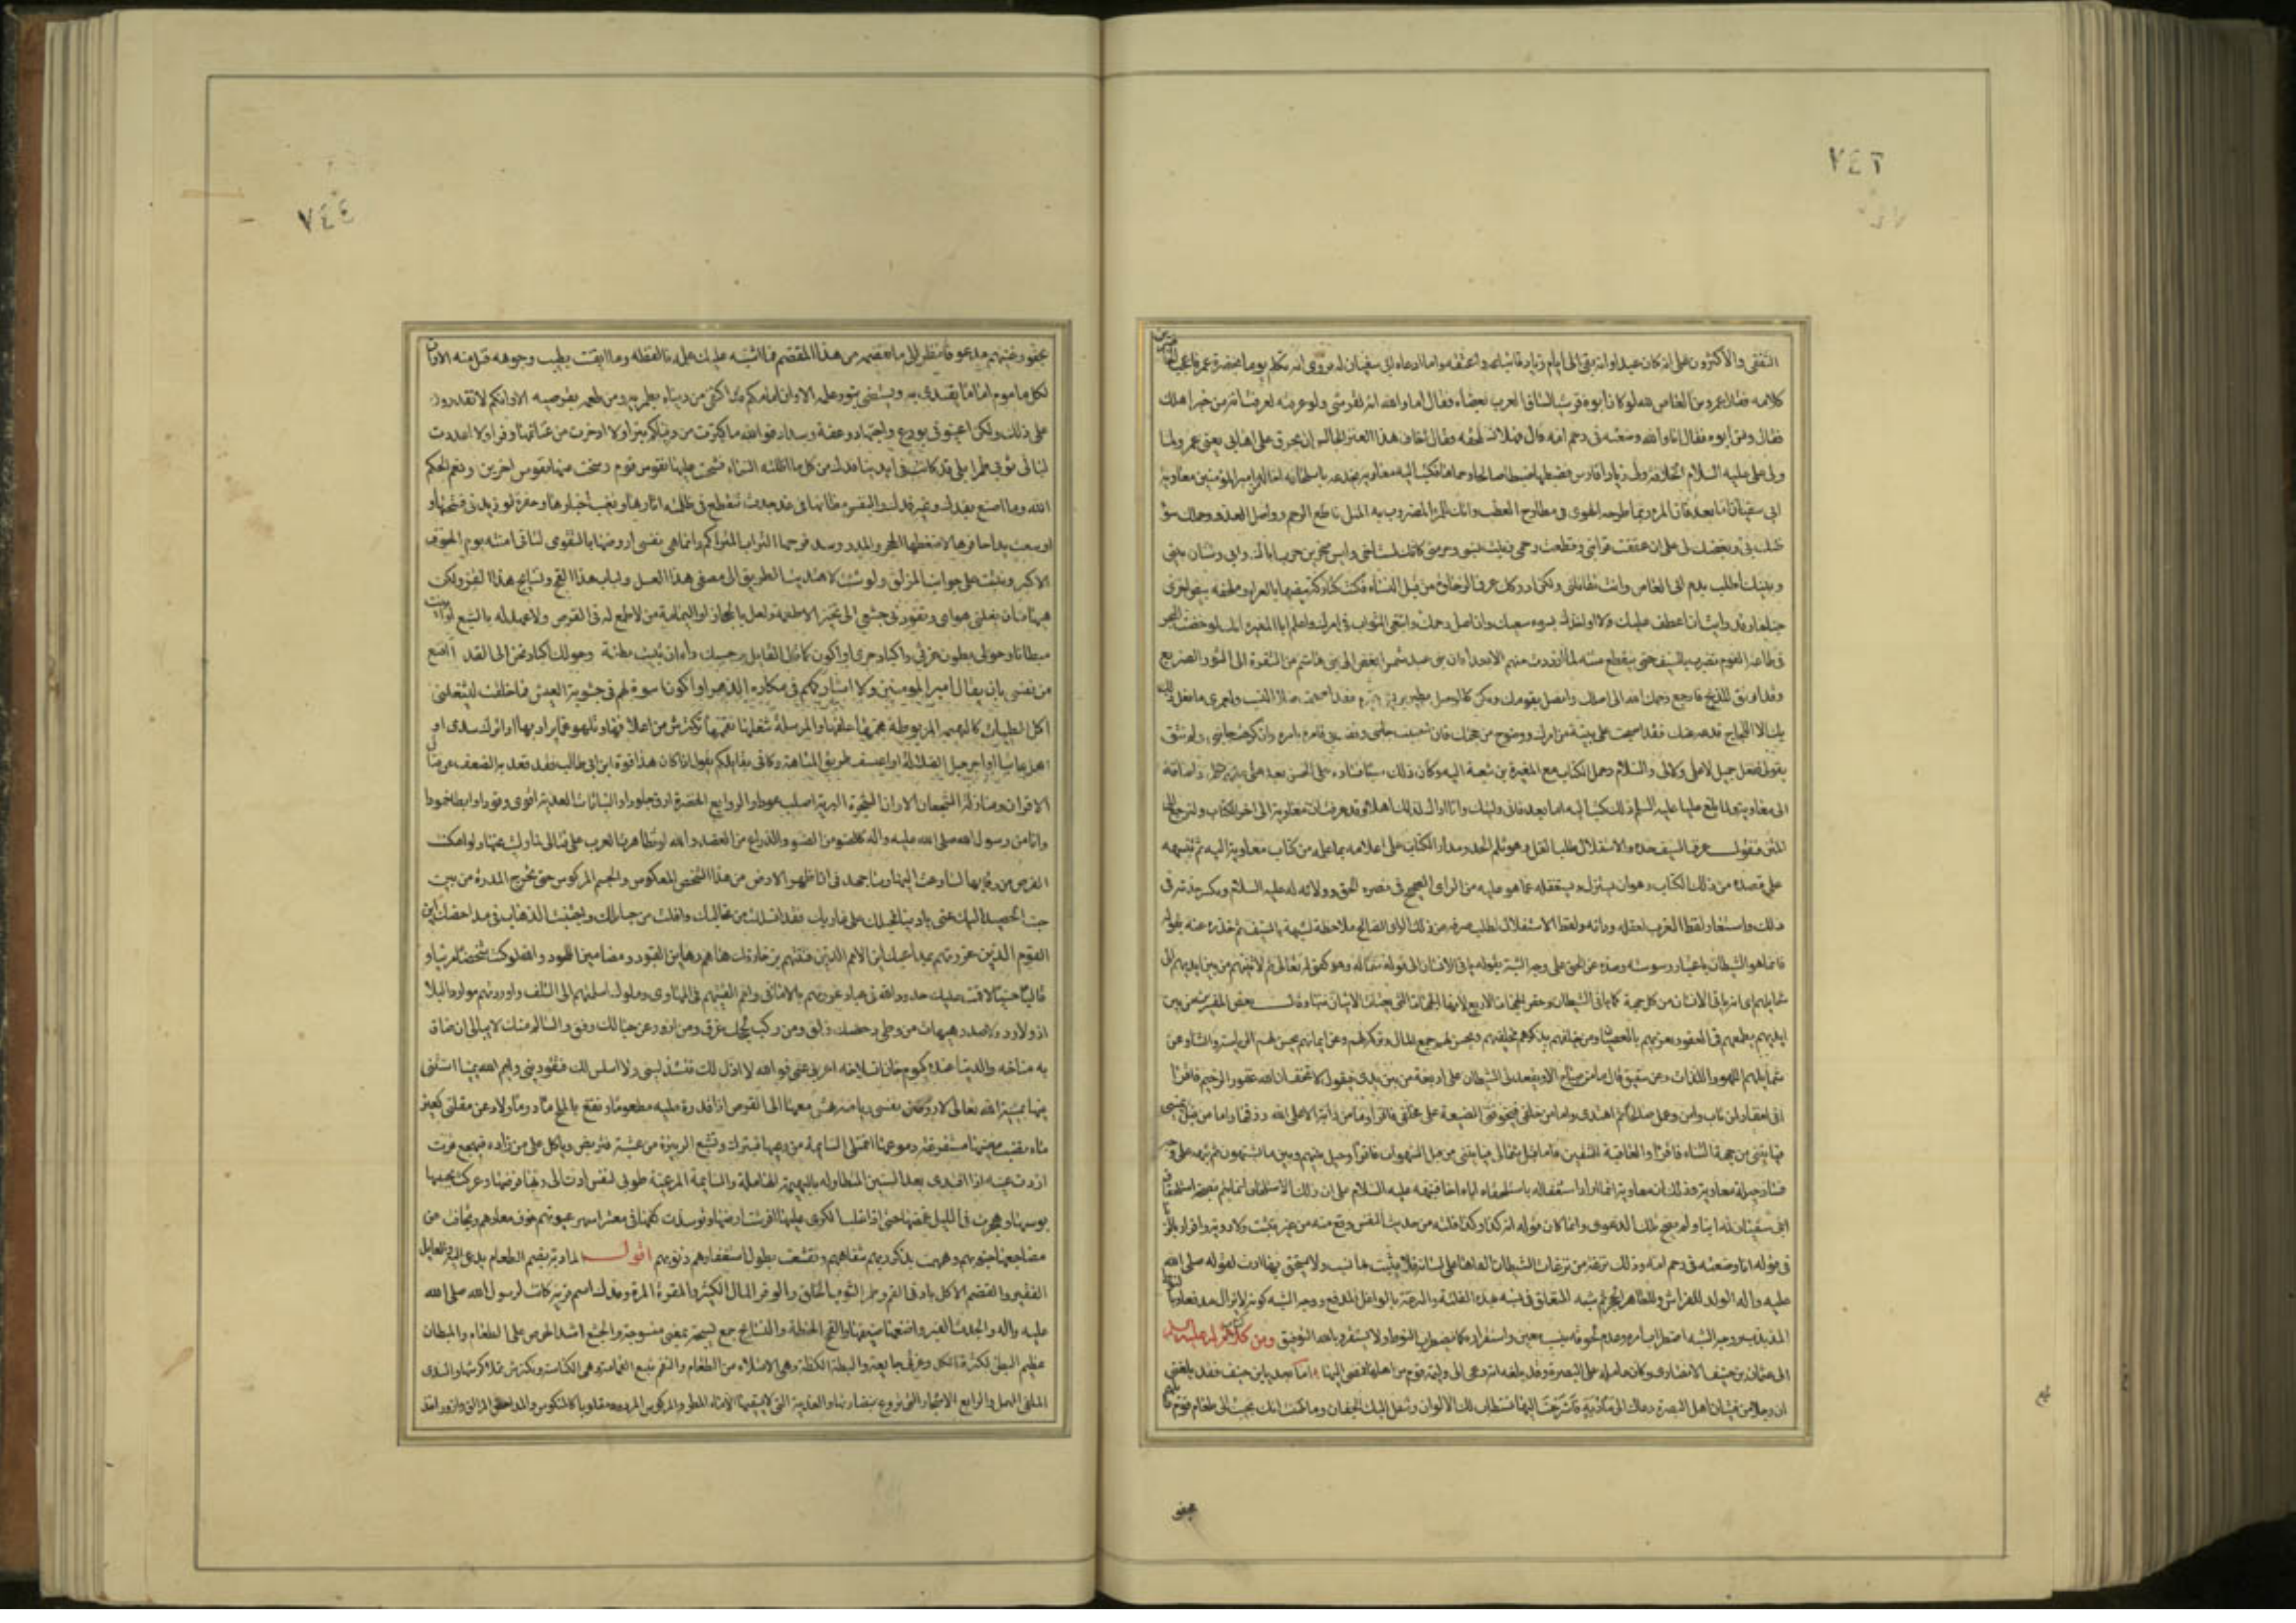 ٧٤٣
الثقفى والأكثرون على انه كان عبدا وانه بقى الى ايام زياد فابتاعه واعتقه واما ادعاء ابى سفيان له فروى انه تكلم يوما بحضرة عمر فاعجب الحاضرين
كلامه فقال عمرو بن العاص لله لو كان ابوه قرشيا لساق العرب بعصاه فقال اما والله انه لقرشى ولو عرفته لعرفت انه من خير اهلك
فقال ومن ابوه فقال انا والله وضعته فى رحم امه قال فهلا تستلحقه وقال اخاف هذا العير الجالس ان يخرق على اهابى يعنى عمر ولما
ولى على عليه السلام الخلافة ولى زيادا فارس فضبطها ضبطا صالحا وحماها فكتب اليه معاوية يخدعه باستلحاقه اخا له من امير المؤمنين معاوية
ابى سفيان اما بعد فان المرء ربما طرحه الهوى فى مطارح العطب وانك للمرء المضروب به المثل قاطع الرحم وواصل العدو وحملك سوء
ظنك بى وبغضك لى على ان عققت قرابتى وقطعت رحمى وبتت نسبى وحرمتى كانك لست اخى وليس صخر بن حرب اباك وابى وشتان بينى
وبينك اطلب بدم ابى العاص وانت تقاتلنى ولكن ادركك عرق الرخاوة من قبل النساء فكنت كتاركة بيضها بالعراء وملحفة بيض اخرى
جناحا وقد رايت ان اعطف عليك ولا اواخذك بسوء سعيك وان اصل رحمك وابتغى الثواب فى امرك واعلم ابا المغيرة انك لو خضت البحر
فى طاعة القوم تضرب بالسيف حتى ينقطع متنه لما ازددت منهم الا بعدا فان بنى عبد شمس ابغض الى بنى هاشم من الشفرة الى الثور الصريع
وقد اوثق للذبح فارجع رحمك الله الى اصلك واتصل بقومك ولا تكن كالموصل يطير بريش غيره فقد اصبحت ضال النسب ولعمرى ما فعل ذلك
بك الا اللجاج فدعه عنك فقد اصبحت على بينة من امرك ووضوح من حجتك فان احببت جانبى ووثقت بى فامرة بامرة وان كرهت جانبى ولم تثق
بقولى ففعل جميل لا على ولا لى والسلام وحمل الكتاب مع المغيرة بن شعبة اليه وكان ذلك سببا
الى معاوية ولما بلغ عليا عليه السلم ذلك كتب اليه اما بعد فانى وليتك وانا اراك لذلك اهلا وقد عرفت ان معاوية الى اخر الكتاب ولنرجع الى
المتن فنقول غرب السيف حده والاستفلال طلب الفل وهو ثلم الحد ومدار الكتاب على اعلامه بما علمه من كتاب معاوية اليه ثم تنبيهه
على قصده من ذلك الكتاب وهو ان يستزله ويستغفله عما هو عليه من الراى الصحيح فى نصرة الحق وولائه له عليه السلام ويكسر حدته فى
ذلك واستعار لفظ الغرب لعقله ورايه ولفظ الاستفلال لطلب صرفه عن ذلك الراى الصالح ملاحظة لشبهه بالسيف ثم حذره عنه بقوله
فانما هو الشيطان باعتبار وسوسته وصده عن الحق على وجه الشبه بقوله ياتى الانسان الى قوله شماله وهو كقوله تعالى ثم لآتينهم من بين ايديهم الى
شمايلهم اى انه ياتى الانسان من كل جهة كما ياتى الشيطان وخص الجهات الاربع لانها الجهات التى يعتك الانسان منها وقال بعض المفسرين من بين
ايديهم يطمعهم فى العفو ويغريهم بالعصيان ومن خلفهم يذكرهم مخلفيهم ويحسن لهم جمع المال وتركه لهم وعن ايمانهم يحسن لهم الرياسة والثناء وعن
شمايلهم اللهو واللذات وعن شقيق قال ما من صباح الا ويقعد لى الشيطان على اربعة من بين يدى فيقول لا تخف فان الله غفور الرحيم فاقرأ
انى لغفار لمن تاب وامن وعمل صالحا ثم اهتدى واما من خلفى فيخوفنى الضيعة على مخلفى فاقرا وما من دابة الا على الله رزقها واما من قبل يمينى
فياتينى من جهة الثناء فاقرأ والعاقبة للمتقين واما قبل شمالى فياتينى من قبل الشهوات فاقرأ وحيل بينهم وبين ما يشتهون ثم نبه على وجه
فساد حيلة معاوية وذلك ان معاوية انما اراد استغفاله باستلحقه اياه اخا فنبهه عليه السلام على ان ذلك الاستلحاق انما يتم بصحة استلحاق
ابى سفيان له ابنا ولم يصح تلك الدعوى وانما كان قوله انه كذا وكذا فلتة من حديث النفس وقع منه من غير تثبت ولا روية واقرار بالزنا
فى قوله انا وضعته فى رحم امه وذلك نزغة من نزغات الشيطان القاها على لسانه فلا يثبت بها نسب ولا يستحق بها ارث لقوله صلى الله
عليه واله الولد للفراش وللعاهر الحجر ثم شبه المتعلق فى نسبه بهذه الفلتة والنزغة بالواغل المدفع ووجه الشبه كونه لا يزال مدفعا وبالنوط
المذبذب ووجه الشبه اضطراب امره وعدم لحوقه بنسب معين واستقراره كما يضطرب النوط ولا يستقر وبالله التوفيق ومن كتاب له عليه السلم
الى عثمان بن حنيف الانصارى وكان عامله على البصرة وقد بلغه انه دعى الى وليمة قوم من اهلها فمضى اليها اما بعد يا ابن حنيف فقد بلغنى
ان رجلا من فتيان اهل البصرة دعاك الى مأدبة فاسرعت اليها تستطاب لك الالوان وتنقل اليك الجفان وما ظننت انك تجيب الى طعام قوم
عفو
٧٤٤
مجفو وغنيهم مدعو فانظر الى ما تقضمه من هذا المقضم فما اشتبه عليك علمه فالفظه وما ايقنت بطيب وجوهه فنل منه الا وان
لكل ماموم اماما يقتدى به ويستضى بنور علمه الا وان امامكم قد اكتفى من دنياه بطمريه ومن طعمه بقرصيه الا وانكم لا تقدرون
على ذلك ولكن اعينونى بورع واجتهاد وعفة وسداد فوالله ما كنزت من دنياكم تبرا ولا ادخرت من غنائمها وفرا ولا اعددت
لبالى ثوبى طمرا بلى قد كانت فى ايدينا فدك من كل ما اظلته السماء فشحت عليها نفوس قوم وسخت عنها نفوس اخرين ونعم الحكم
الله وما اصنع بفدك وغير فدك والنفس مظانها فى غد جدث تنقطع فى ظلمته اثارها وتغيب اخبارها وحفرة لو زيد فى فسحتها و
اوسعت يدا حافرها لاضغطها الحجر والمدر وسد فرجها التراب المتراكم وانما هى نفسى اروضها بالتقوى لتاتى امنة يوم الخوف
الاكبر وتثبت على جوانب المزلق ولو شئت لاهتديت الطريق الى مصفى هذا العسل ولباب هذا القمح ونسايج هذا القز ولكن
هيهات ان يغلبنى هواى ويقودنى جشعى الى تخير الاطعمة ولعل بالحجاز او اليمامة من لا طمع له فى القرص ولا عهد له بالشبع او ابيت
مبطانا وحولى بطون غرثى واكباد حرى او اكون كما قال القايل وحسبك داء ان تبيت ببطنة وحولك اكباد تحن الى القد أأقنع
من نفسى بان يقال امير المومنين ولا اشاركهم فى مكاره الدهر او اكون اسوة لهم فى جشوبة العيش فما خلقت ليشغلنى
اكل الطيبات كالبهيمة المربوطة همها علفها او المرسلة شغلها تقممها تكترش من اعلافها وتلهو عما يراد بها او اترك سدى او
اهمل عابثا او اجر حبل الضلالة او اعتسف طريق المتاهة وكانى بقايلكم يقول اذا كان هذا قوت ابن ابى طالب فقد قعد به الضعف عن قتال
الاقران ومنازلة الشجعان الا وان الشجرة البرية اصلب عودا والروايع الخضرة ارق جلودا والنباتات العذية اقوى وقودا وابطا خمودا
وانا من رسول الله صلى الله عليه واله كالضوء من الضوء والذراع من العضد والله لو تظاهرت العرب على قتالى لما وليت عنها ولو امكنت
الفرص من رقابها لسارعت اليها وساجهد فى ان اطهر الارض من هذا الشخص المعكوس والجسم المركوس حتى تخرج المدرة من بين
حب الحصيد اليك عنى يا دنيا فحبلك على غاربك فقد انسللت من مخالبك وافلت من حبايلك واجتنبت الذهاب فى مداحضك اين
القوم الذين غررتهم بمداعبك اين الامم الذين فتنتهم بزخارفك ها هم رهاين القبور ومضامين اللحود والله لو كنت شخصا مرئيا و
قالبا حسيا لاقمت عليك حدود الله فى عباد غررتهم بالامانى وامم القيتهم فى المهاوى وملوك اسلمتهم الى التلف واوردتهم موارد البلا
اذ لا ورد ولا صدر هيهات من وطى دحضك زلق ومن ركب لججك غرق ومن ازور عن حبالك وفق والسالم منك لا يبالى ان ضاق
به مناخه والدنيا عنده كيوم حان انسلاخه اعزبى عنى فوالله لا اذل لك فتستذلينى ولا اسلس لك فتقودينى وايم الله يمينا استثنى
فيها بمشية الله تعالى لاروضن نفسى رياضة تهش معها الى القرص اذا قدرت عليه مطعوما وتقنع بالملح مادوما ولادعن مقلتى كعين
ماء نضب معينها مستفرغة دموعها اتمتلى السايمة من رعيها فتبرك وتشبع الربيضة من عشبها فتربض وياكل على من زاده فيهجع قرت
اذا عينه اذا اقتدى بعد السنين المتطاولة بالبهيمة الهاملة والسايمة المرعية طوبى لنفس ادت الى ربها فرضها وعركت بجنبها
بوسها وهجرت فى الليل غمضها حتى اذا غلب الكرى عليها افترشت ارضها وتوسدت كفها فى معشر اسهر عيونهم خوف معادهم وتجافت عن
مضاجعها جنوبهم وهمهمت بذكر ربهم شفاههم وتقشعت بطول استغفارهم ذنوبهم اقول المادبة بضم الطعام يدعى اليه والعايل
الفقير والقضم الاكل بادنى الفم والطمر الثوب الخلق والوفر المال الكثير والمقرة المرة وفدك اسم قرية كانت لرسول الله صلى الله
عليه واله والجدث القبر واضغطها ضيقها والقمح الحنطة والنسايج جمع نسيجة بمعنى منسوجة والجشع اشد الحرص على الطعام والمبطان
عظيم البطن لكثرة الاكل وغرثى جايعة والبطنة الكظة وهى الامتلاء من الطعام والتقمم تتبع القمامة وهى الكناسة وتكترش تملا كرشها والسدى